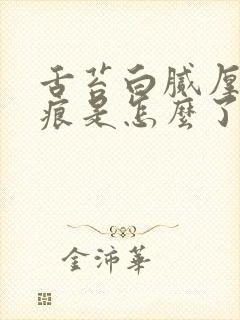 舌苔白腻厚
痕是怎麼了
金沛華